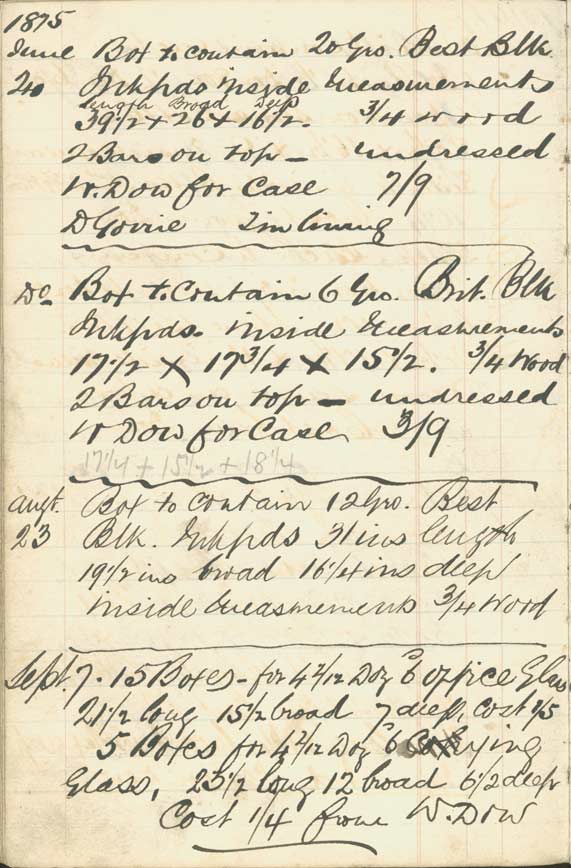 1875
June Box to contain 20 Gro. Best Blk
24 Inkpds inside measurements
length Broad Deep
39 1/2 x 26 x 16 1/2. 3/4 wood
2 Bars on top — undressed
W. Dow for Case 7/9
D Govrie Tin lining
Do Box to contain 6 Gro. Brit. Blk
Inkpds. inside measurements
17 1/2 x 17 3/4 x 15 1/2. 3/4 Wood
2 Bars on top — undressed
W Dow for Case 3/9
17 1/4 + 15 1/2 + 18 1/4
Augt. Box to contain 12 Gro. Best
23 Blk. Inkpds 31 ins length
19 1/2 ins broad 16 1/4 ins deep
inside measurements 3/4 Wood
Sept. 7. 15 Boxes - for 4 2/12 Doz 6 office Glass
21 1/2 long 15 1/2 broad 7 deep, cost 1/5
5 Boxes for 4 2/12 Doz 6
Glass, 25 1/2 long 12 broad 6 1/2 deep
Cost 1/4 from W. Dow